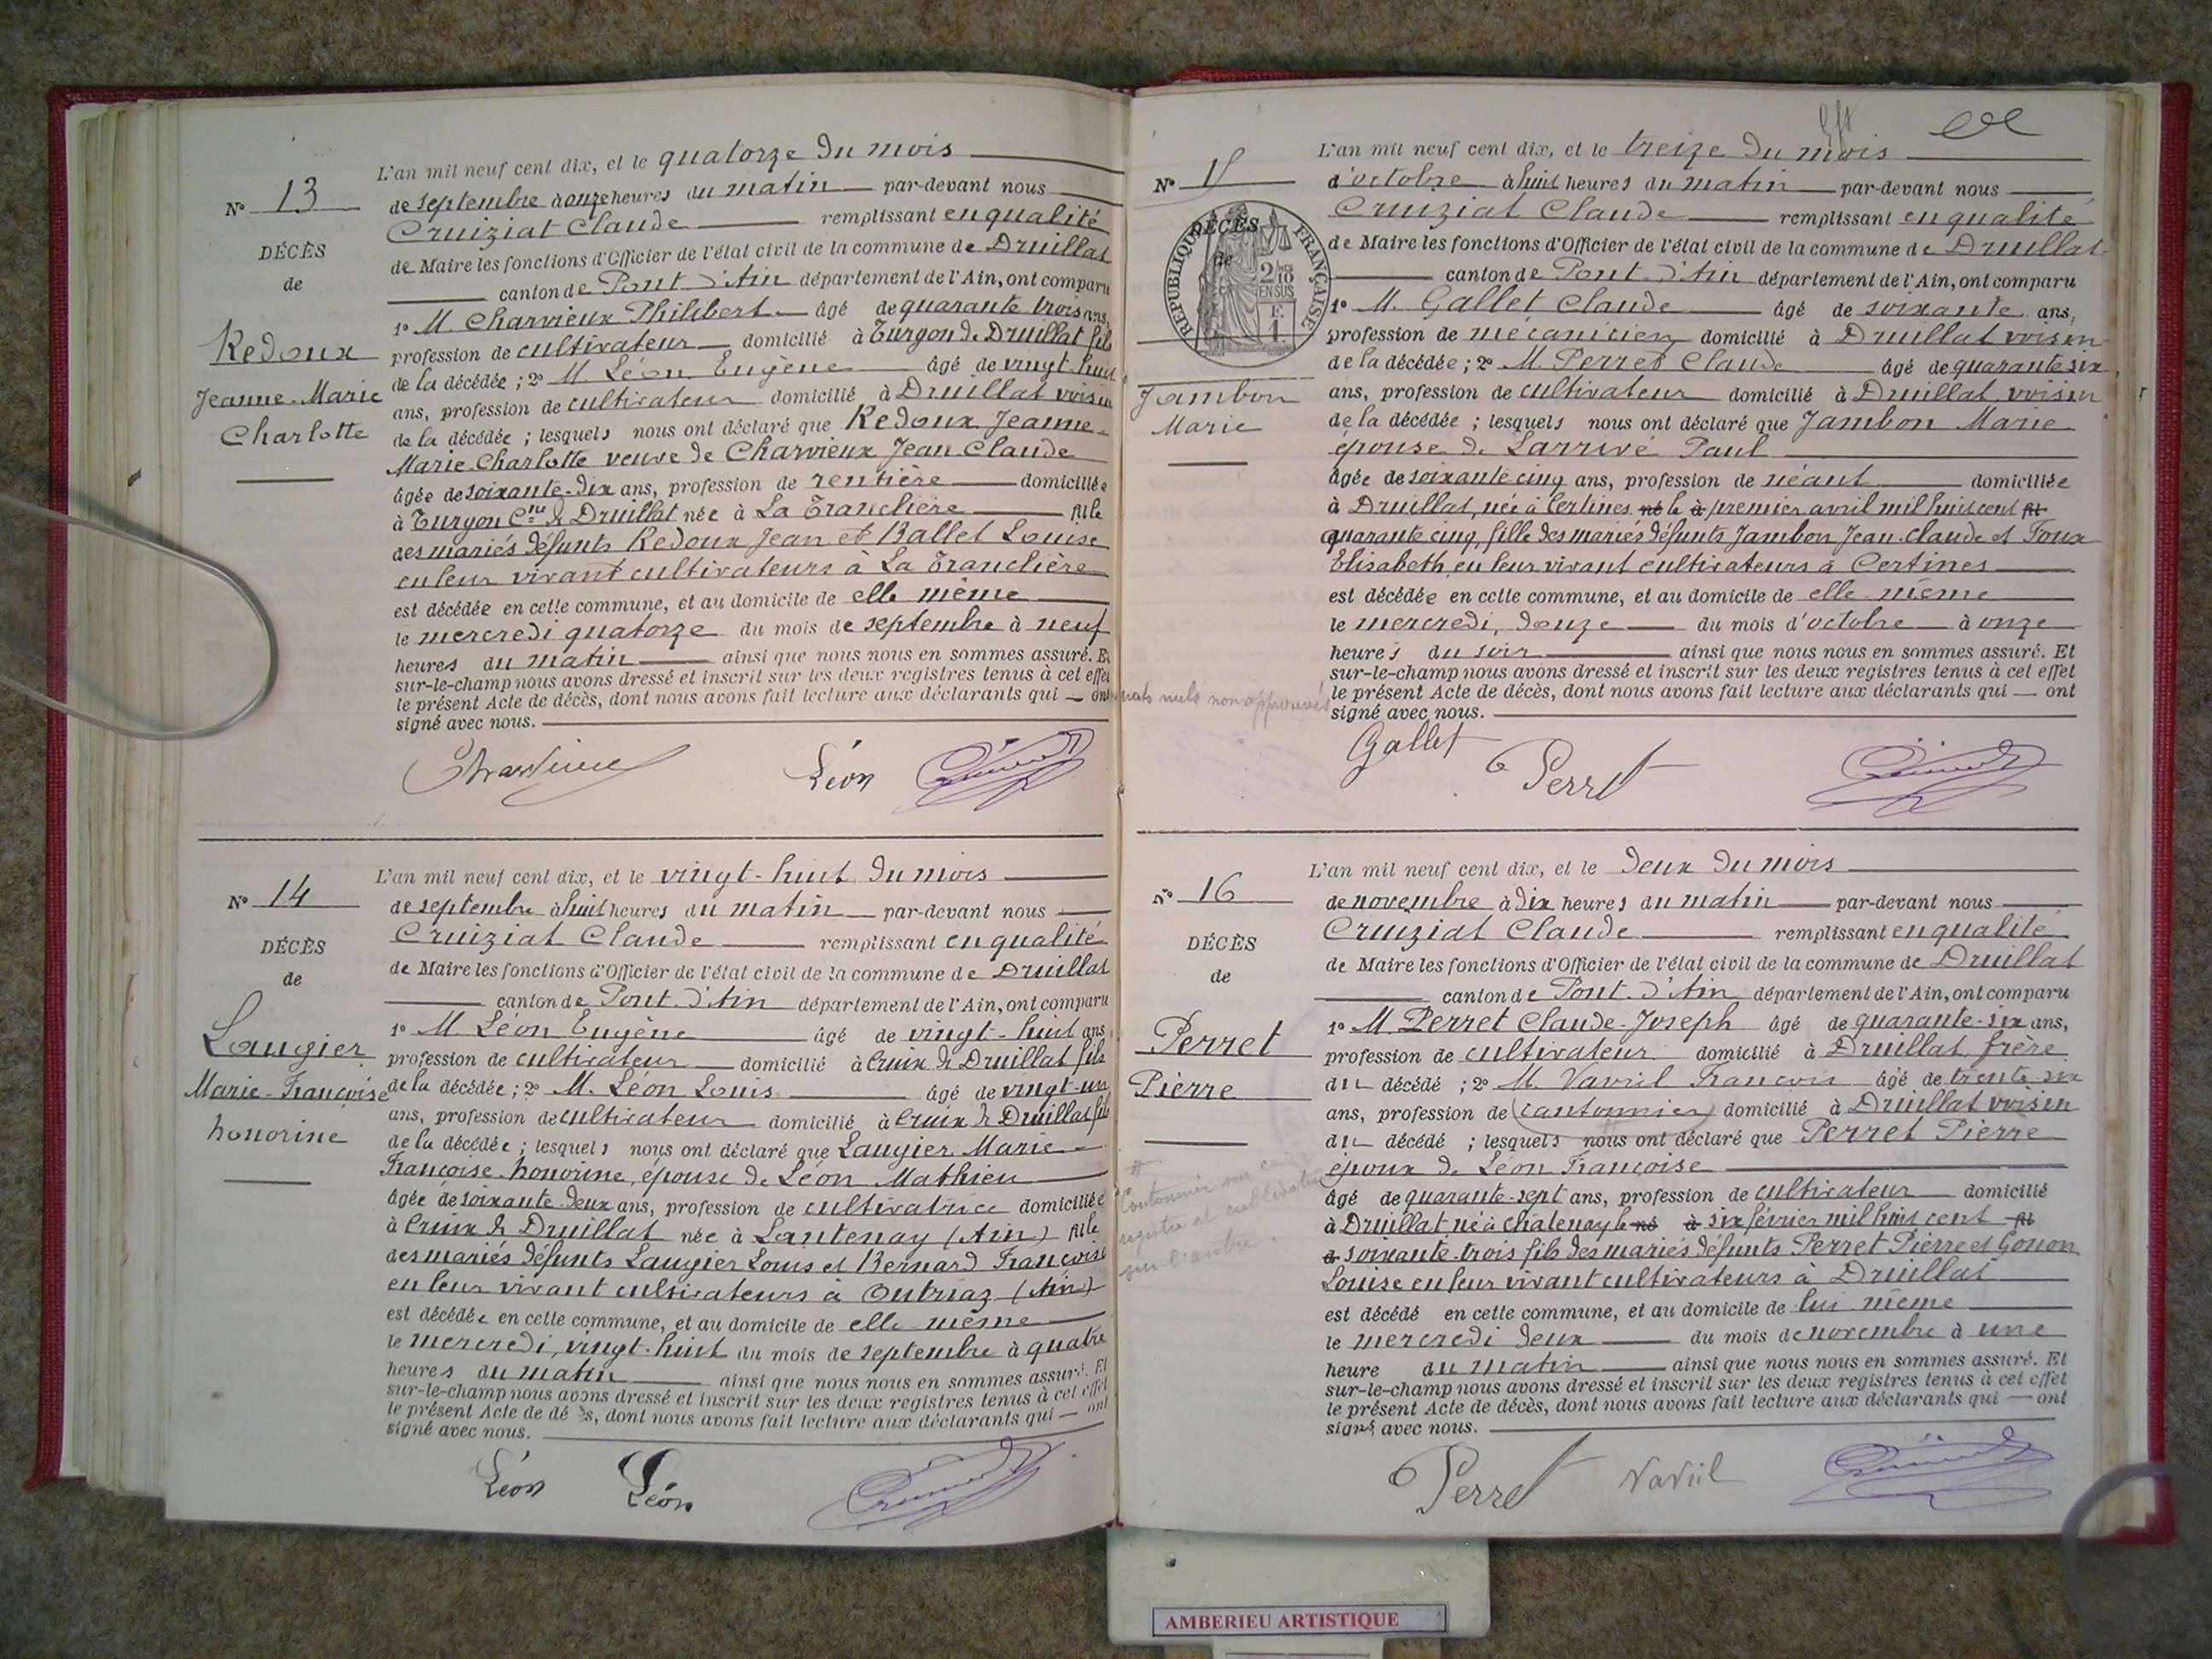 N° 13
DÉCÈS
de
Redoux
Jeanne-Marie
Charlotte
L'an mil neuf cent dix, et le quatorze du mois
de septembre à onze heures du matin par-devant nous
Cruiziat Claude remplissant en qualité
de Maire les fonctions d'Officier de l'état civil de la commune de Druillat
canton de Pont d'Ain département de l'Ain, ont comparu
1° M. Charvieux Philibert âgé de quarante trois ans,
profession de cultivateur domicilié à Turgon de Druillat fils
de la décédée ; 2° M. Léon Eugène âgé de vingt-huit
ans, profession de cultivateur domicilié à Druillat voisin
de la décédée ; lesquels nous ont déclaré que Redoux Jeanne-
Marie Charlotte veuve de Charvieux Jean Claude
âgée de soixante-dix ans, profession de rentière domiciliée
à Turgon Cne de Druillat née à La Tranclière fille
des mariés défunts Redoux Jean et Ballet Louise
en leur vivant cultivateurs à La Tranclière
est décédée en cette commune, et au domicile de elle même
le mercredi quatorze du mois de septembre à neuf
heures du matin ainsi que nous nous en sommes assuré. Et
sur-le-champ nous avons dressé et inscrit sur les deux registres tenus à cet effet
le présent Acte de décès, dont nous avons fait lecture aux déclarants qui — ont
signé avec nous.
Léon
N° 14
DÉCÈS
de
Laugier
Marie-Françoise
honorine
L'an mil neuf cent dix, et le vingt-huit du mois
de septembre à huit heures du matin par-devant nous
Cruiziat Claude remplissant en qualité
de Maire les fonctions d'Officier de l'état civil de la commune de Druillat
canton de Pont d'Ain département de l'Ain, ont comparu
1° M Léon Eugène âgé de vingt-huit ans
profession de cultivateur domicilié à Cruix de Druillat fils
de la décédée ; 2° M. Léon Louis âgé de vingt-un
ans, profession de cultivateur domicilié à Cruix de Druillat fils
de la décédée ; lesquels nous ont déclaré que Laugier Marie-
Françoise-honorine, épouse de Léon Mathieu
âgée de soixante-deux ans, profession de cultivatrice domiciliée
à Cruix de Druillat née à Lantenay (Ain) fille
des mariés défunts Laugier Louis et Bernard Françoise
en leur vivant cultivateurs à Outriaz (Ain)
est décédée en cette commune, et au domicile de elle même
le mercredi, vingt-huit du mois de septembre à quatre
heures du matin ainsi que nous nous en sommes assuré. Et
sur-le-champ nous avons dressé et inscrit sur les deux registres tenus à cet effet
le présent Acte de décès, dont nous avons fait lecture aux déclarants qui — ont
signé avec nous.
Léon Léon
N° 15
DÉCÈS
de
RÉPUBLIQUE FRANÇAISE
2/10
EN SUS
F.
1.
Jambon
Marie
L'an mil neuf cent dix, et le treize du mois
d'octobre à huit heures du matin par-devant nous
Cruiziat Claude remplissant en qualité
de Maire les fonctions d'Officier de l'état civil de la commune de Druillat
canton de Pont d'Ain département de l'Ain, ont comparu
1° M. Gallet Claude âgé de soixante ans,
profession de mécanicien domicilié à Druillat voisin
de la décédée ; 2° M. Perret Claude âgé de quarante six
ans, profession de cultivateur domicilié à Druillat, voisin
de la décédée ; lesquels nous ont déclaré que Jambon Marie
épouse de Larrivé Paul
âgée de soixante cinq ans, profession de néant domiciliée
à Druillat, née à Certines né le à premier avril mil huit cent fil
quarante cinq, fille des mariés défunts Jambon Jean-Claude et Foux
Elisabeth, en leur vivant cultivateurs à Certines
est décédée en cette commune, et au domicile de elle même
le mercredi, douze du mois d'octobre à onze
heures du soir ainsi que nous nous en sommes assuré. Et
sur-le-champ nous avons dressé et inscrit sur les deux registres tenus à cet effet
mots nuls non approuvés
le présent Acte de décès, dont nous avons fait lecture aux déclarants qui — ont
signé avec nous.
Gallet Perret
N° 16
DÉCÈS
de
Perret
Pierre
L'an mil neuf cent dix, et le deux du mois
de novembre à dix heures du matin par-devant nous
Cruiziat Claude remplissant en qualité
de Maire les fonctions d'Officier de l'état civil de la commune de Druillat
canton de Pont d'Ain département de l'Ain, ont comparu
1° M. Perret Claude-Joseph âgé de quarante-six ans,
profession de cultivateur domicilié à Druillat, frère
du décédé ; 2° M. Vavril François âgé de trente six
ans, profession de cantonnier domicilié à Druillat voisin
du décédé ; lesquels nous ont déclaré que Perret Pierre
époux de Léon Françoise
âgé de quarante-sept ans, profession de cultivateur domicilié
à Druillat né à Chatenay le né à six février mil huit cent fil
à soixante-trois fils des mariés défunts Perret Pierre et Gonon
Louise en leur vivant cultivateurs à Druillat
est décédé en cette commune, et au domicile de lui même
le mercredi deux du mois de novembre à une
heure du matin ainsi que nous nous en sommes assuré. Et
sur-le-champ nous avons dressé et inscrit sur les deux registres tenus à cet effet
le présent Acte de décès, dont nous avons fait lecture aux déclarants qui — ont
signé avec nous.
Cantonnier sur ce
registre et cultivateur
sur l'autre.
Perret Vavril
AMBERIEU ARTISTIQUE